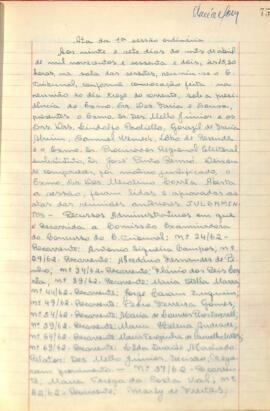 75
Ata da 1ª sessão ordinária
Aos vinte e sete dias do mês de abril
de mil novecentos e sessenta e dois, às 15,30
horas, na sala das sessões, reuniu-se o
Tribunal, conforme convocação feita na
reunião do dia treze do corrente, sob a presi-
dência do Exmo. Sr. Des. Faria e Sousa,
presentes o Exmo. Sr. Des. Mello Júnior e os
Exmos. Srs. Drs. Gonzil de Faria
Alvim, Lopes de Rezende
e o Exmo. Sr. Procurador Regional Eleitoral
substituto, Dr. José Pinto Renó. Deixou
de comparecer, por motivo justificado, o
Exmo. Sr. Des. Merolino Corrêa. Aberta
a sessão, foram lidas e aprovadas as
atas das reuniões anteriores. JULGAMEN-
TOS - Recursos Administrativos em que
é Recorrida a Comissão Examinadora
do Concurso do Tribunal: nº 24/62 -
Recorrente: Antonio Campos, nº
29/62 - Recorrente: Fernandes de Pi-
nho, nº 34/62 - Recorrente: Flávio dos Reis
nº 39/62 - Recorrente: Maria
nº 44/62 - Recorrente: Jorge
nº 49/62 - Recorrente: Fábio Ferreira Gomes,
nº 54/62 - Recorrente: Maria de
nº 59/62 - Recorrente: Maria Helena Andrade,
nº 64/62 - Recorrente: Maria
nº 69/62 - Recorrente: Ilda Machado.
Relator: Des. Mello Júnior. Decisão: Nega-
ram provimento. - Nº 57/62 - Recorren-
te, Maria Tereza da Costa Val, nº
62/62 - Recorrente: Marly de Freitas,